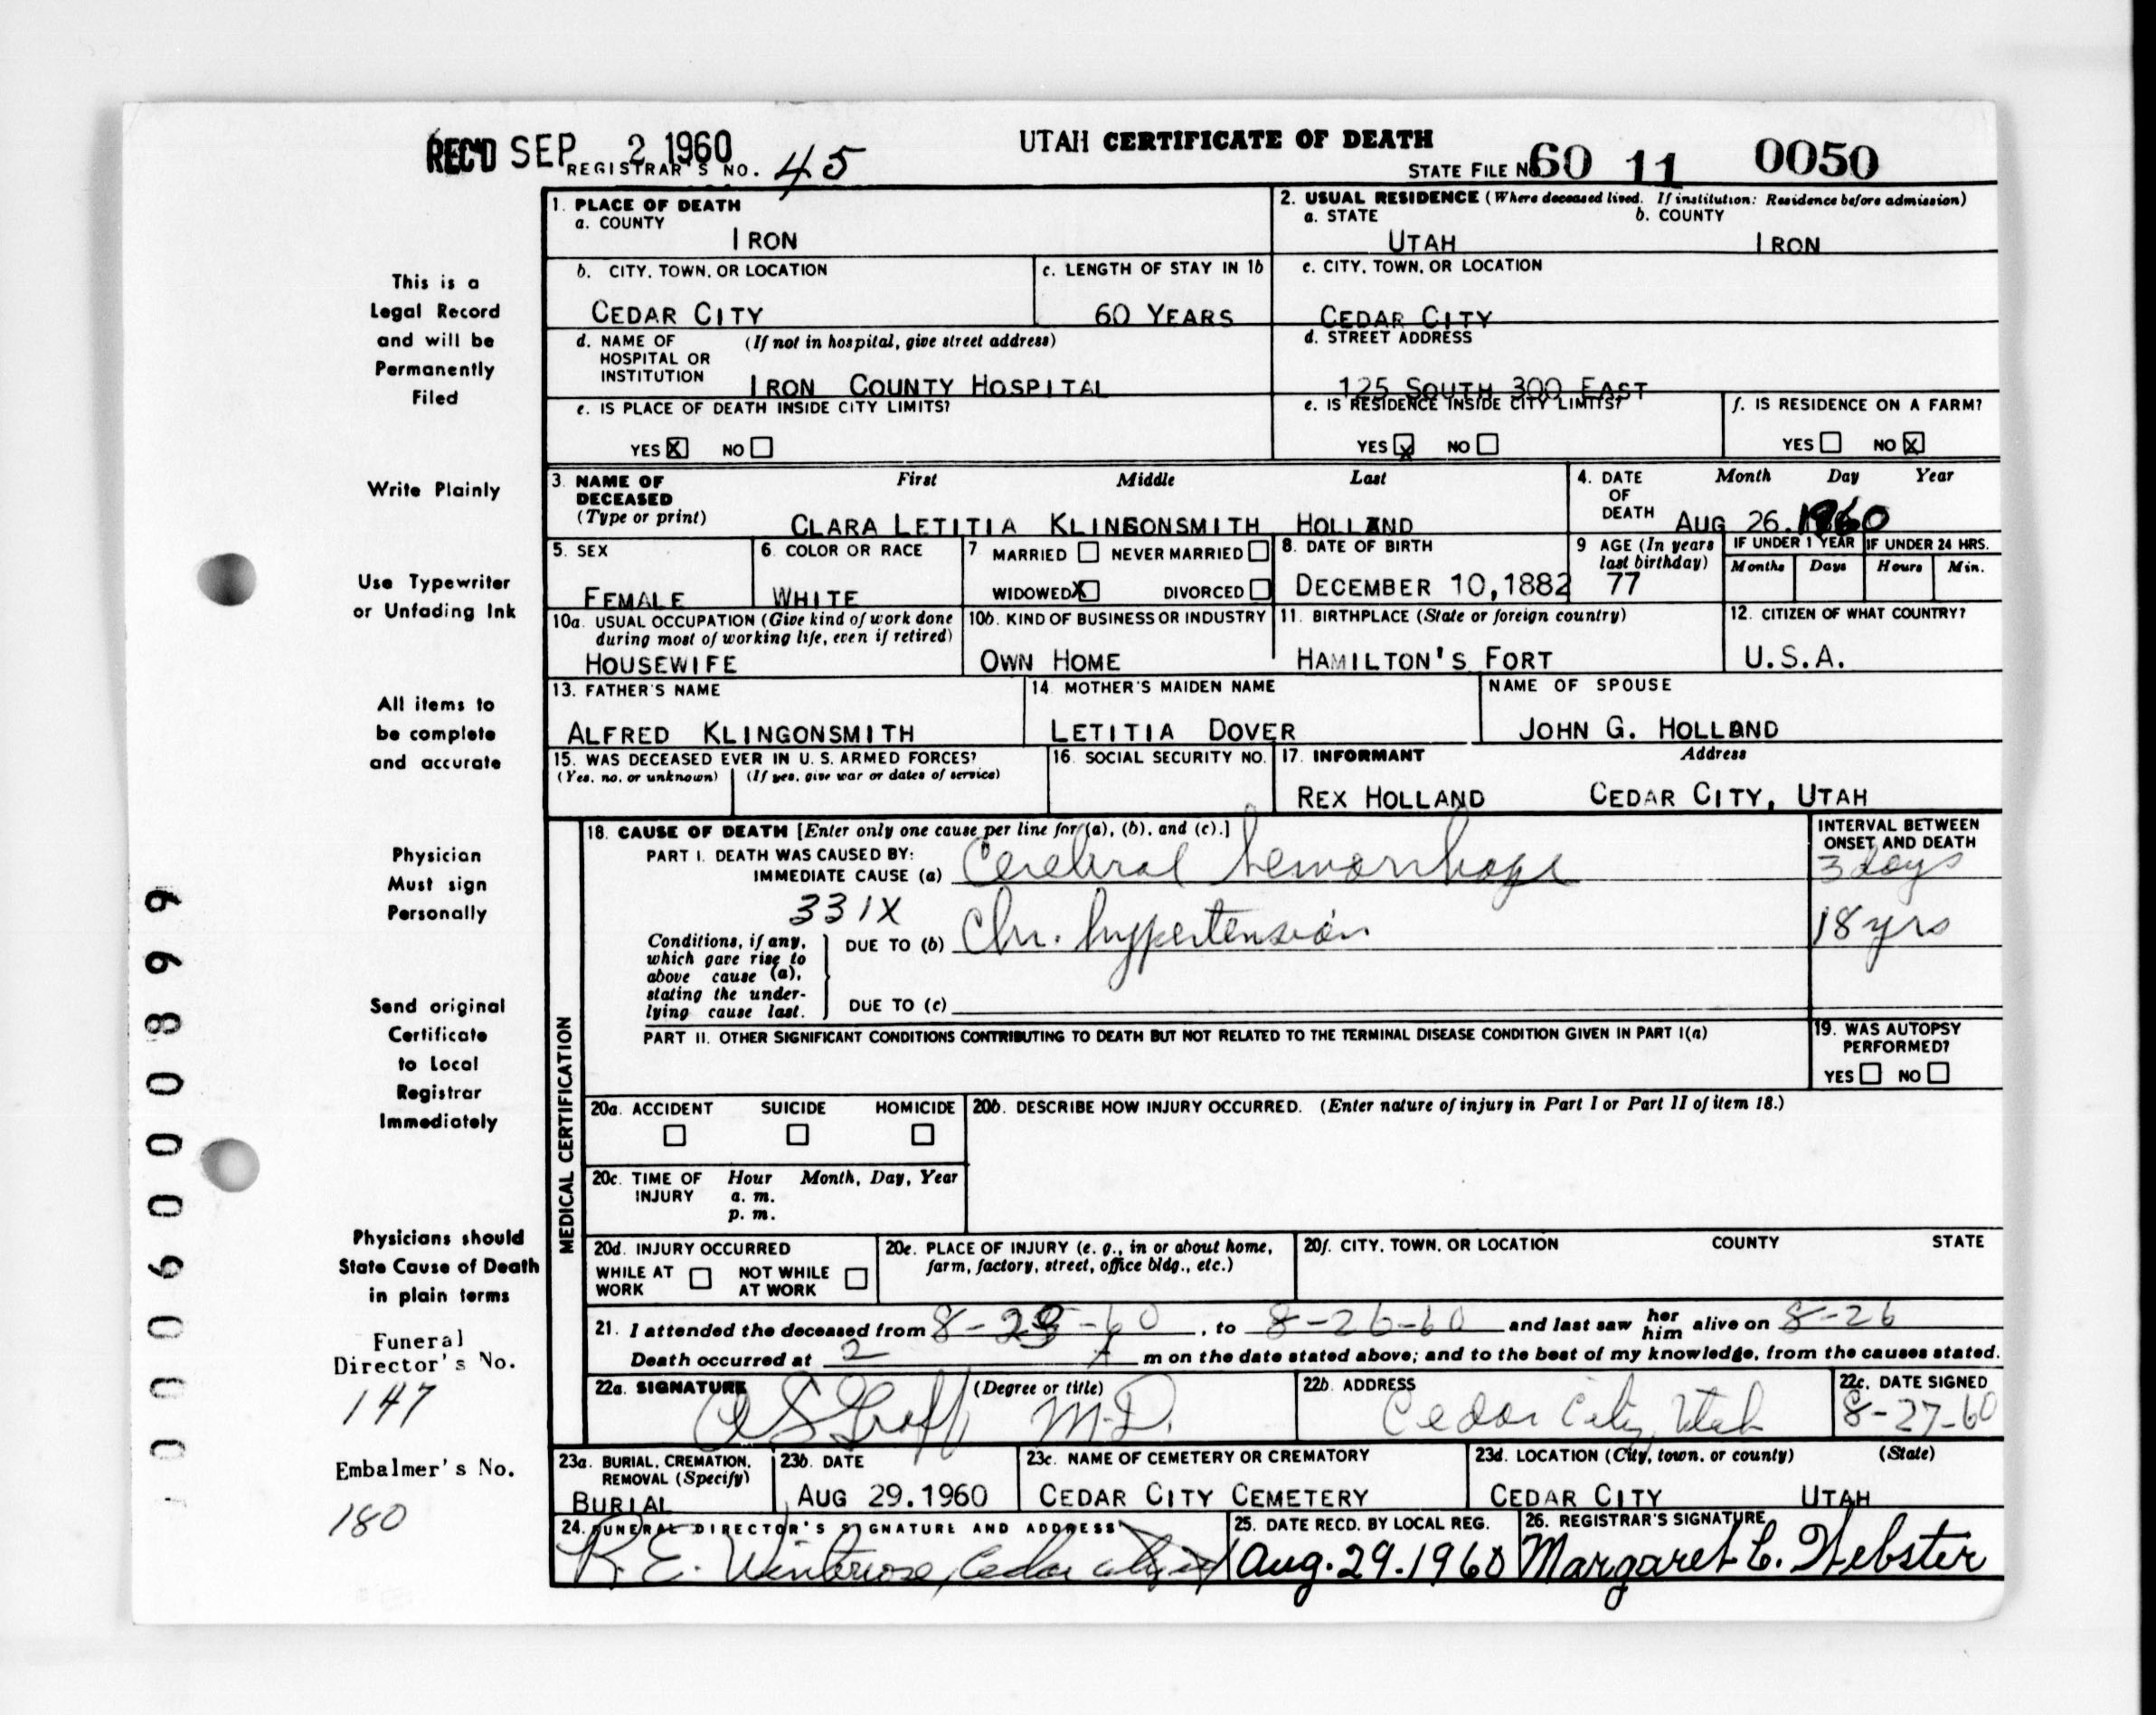 REC'D SEP 2 1960
UTAH CERTIFICATE OF DEATH
REGISTRAR'S NO. 45
STATE FILE NO. 60 11 0050
1. PLACE OF DEATH
a. COUNTY
IRON
2. USUAL RESIDENCE (Where deceased lived. If institution: Residence before admission)
a. STATE b. COUNTY
UTAH IRON
b. CITY, TOWN, OR LOCATION
CEDAR CITY
c. LENGTH OF STAY IN 1b
60 YEARS
c. CITY, TOWN, OR LOCATION
CEDAR CITY
d. NAME OF (If not in hospital, give street address)
HOSPITAL OR
INSTITUTION IRON COUNTY HOSPITAL
d. STREET ADDRESS
125 SOUTH 300 EAST
e. IS PLACE OF DEATH INSIDE CITY LIMITS?
YES X NO
e. IS RESIDENCE INSIDE CITY LIMITS?
YES X NO
f. IS RESIDENCE ON A FARM?
YES NO X
3. NAME OF DECEASED (Type or print)
First Middle Last
CLARA LETITIA KLINGONSMITH HOLLAND
4. DATE OF DEATH
Month Day Year
AUG 26. 1960
5. SEX
FEMALE
6. COLOR OR RACE
WHITE
7 MARRIED NEVER MARRIED
WIDOWED X DIVORCED
8. DATE OF BIRTH
DECEMBER 10,1882
9 AGE (In years last birthday)
77
IF UNDER 1 YEAR
Months Days
IF UNDER 24 HRS.
Hours Min.
10a. USUAL OCCUPATION (Give kind of work done
during most of working life, even if retired)
HOUSEWIFE
10b. KIND OF BUSINESS OR INDUSTRY
OWN HOME
11. BIRTHPLACE (State or foreign country)
HAMILTON'S FORT
12. CITIZEN OF WHAT COUNTRY?
U.S.A.
13. FATHER'S NAME
ALFRED KLINGONSMITH
14. MOTHER'S MAIDEN NAME
LETITIA DOVER
NAME OF SPOUSE
JOHN G. HOLLAND
15. WAS DECEASED EVER IN U. S. ARMED FORCES?
(Yes, no, or unknown) (If yes, give war or dates of service)
16. SOCIAL SECURITY NO.
17. INFORMANT Address
REX HOLLAND CEDAR CITY, UTAH
MEDICAL CERTIFICATION
18. CAUSE OF DEATH [Enter only one cause per line for (a), (b), and (c).]
PART I. DEATH WAS CAUSED BY:
IMMEDIATE CAUSE (a) Cerebral hemorrhage
331X
Conditions, if any,
which gave rise to
above cause (a),
stating the under-
lying cause last.
DUE TO (b) Chr. hypertension
DUE TO (c)
INTERVAL BETWEEN
ONSET AND DEATH
3 days
18 yrs
PART II. OTHER SIGNIFICANT CONDITIONS CONTRIBUTING TO DEATH BUT NOT RELATED TO THE TERMINAL DISEASE CONDITION GIVEN IN PART I(a)
19. WAS AUTOPSY
PERFORMED?
YES NO
20a. ACCIDENT SUICIDE HOMICIDE
20b. DESCRIBE HOW INJURY OCCURRED. (Enter nature of injury in Part I or Part II of item 18.)
20c. TIME OF INJURY
Hour Month, Day, Year
a. m.
p. m.
20d. INJURY OCCURRED
WHILE AT WORK NOT WHILE AT WORK
20e. PLACE OF INJURY (e. g., in or about home,
farm, factory, street, office bldg., etc.)
20f. CITY, TOWN, OR LOCATION COUNTY STATE
21. I attended the deceased from 8-23-60, to 8-26-60 and last saw her him alive on 8-26
Death occurred at 2 A m on the date stated above; and to the best of my knowledge, from the causes stated.
22a. SIGNATURE (Degree or title)
M.D.
22b. ADDRESS
Cedar City, Utah
22c. DATE SIGNED
8-27-60
23a. BURIAL, CREMATION,
REMOVAL (Specify)
BURIAL
23b. DATE
AUG 29.1960
23c. NAME OF CEMETERY OR CREMATORY
CEDAR CITY CEMETERY
23d. LOCATION (City, town, or county) (State)
CEDAR CITY UTAH
24. FUNERAL DIRECTOR'S SIGNATURE AND ADDRESS
R. E. Cedar City
25. DATE RECD. BY LOCAL REG.
Aug. 29. 1960
26. REGISTRAR'S SIGNATURE
Margaret C. Webster
This is a
Legal Record
and will be
Permanently
Filed
Write Plainly
Use Typewriter
or Unfading Ink
All items to
be complete
and accurate
Physician
Must sign
Personally
Send original
Certificate
to Local
Registrar
Immediately
Physicians should
State Cause of Death
in plain terms
Funeral
Director's No.
147
Embalmer's No.
180